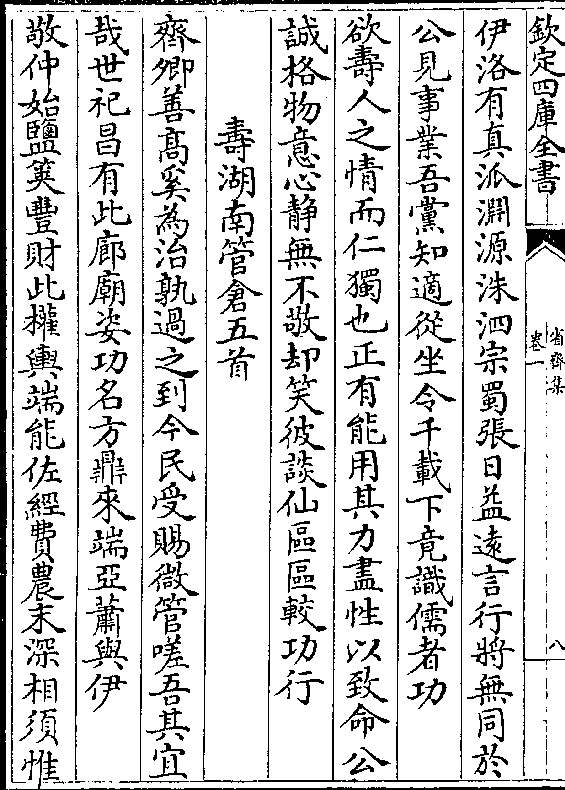 欽定四庫全書
省齋集
卷一
八
伊洛有真派淵源洙泗宗蜀張日益遠言行將無同於
公見事業吾黨知適從坐令千載下竟識儒者功
欲壽人之情而仁獨也正有能用其力盡性以致命公
誠格物意心静無不敬却笑彼談仙區區較功行
壽湖南管倉五首
齊卿善髙奚為治孰過之到今民受賜微管嗟吾其宜
哉世祀昌有此廊廟姿功名方鼎來端亞蕭與伊
敬仲始鹽筴豐財此權輿端能佐經費農末深相須惟